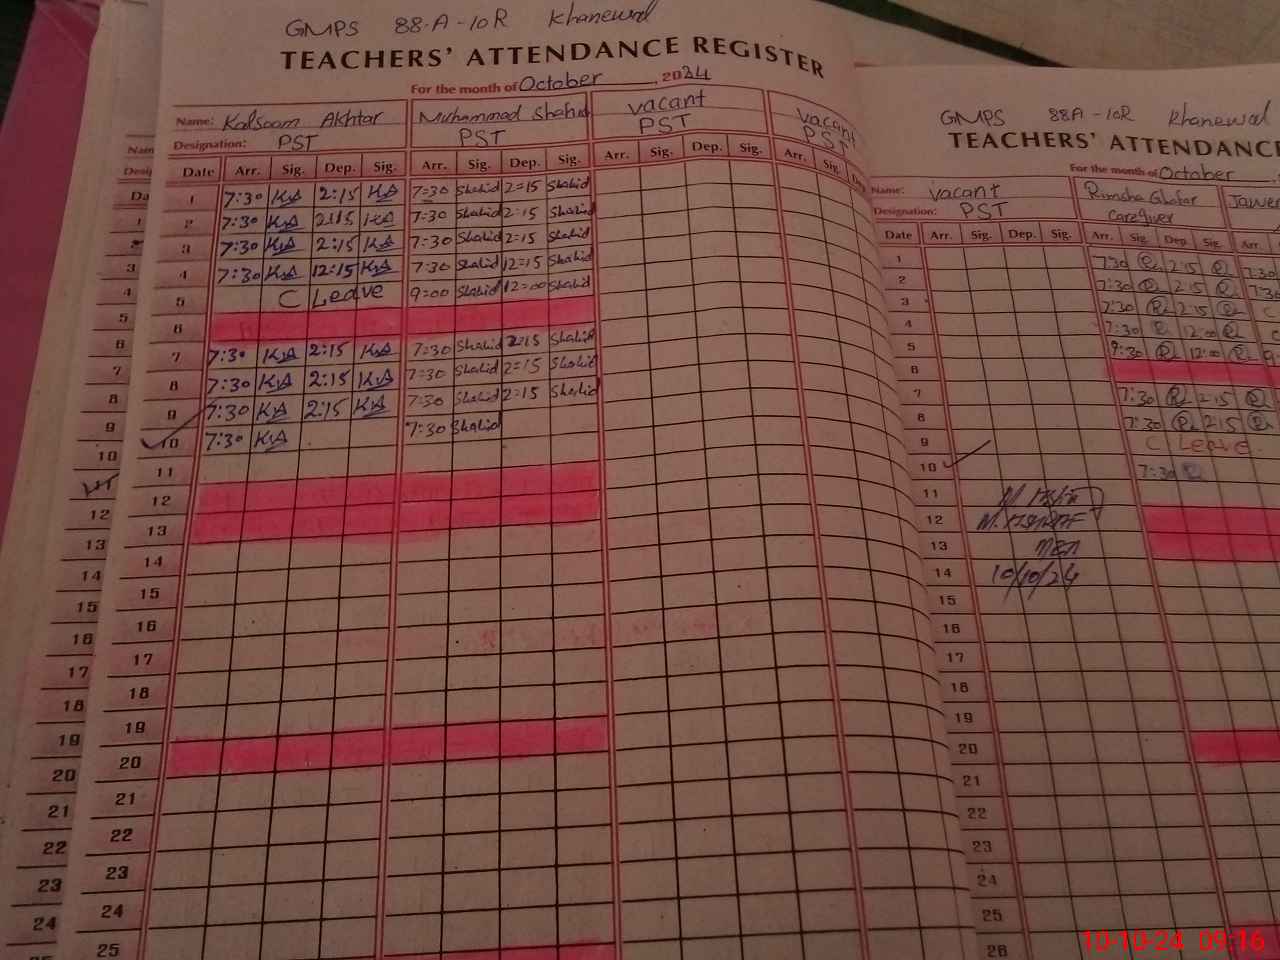 GMPS 88-A-10R Khanewal
TEACHERS' ATTENDANCE REGISTER
For the month of October, 2024
Name: Kalsoom Akhtar Muhammad Shahid vacant vacant
Designation: PST PST PST PST
Date Arr. Sig. Dep. Sig. Arr. Sig. Dep. Sig. Arr. Sig. Dep. Sig. Arr. Sig.
1 7:30 KA 2:15 KA 7:30 Shahid 2:15 Shahid
2 7:30 KA 2:15 KA 7:30 Shahid 2:15 Shahid
3 7:30 KA 2:15 KA 7:30 Shahid 2:15 Shahid
4 7:30 KA 12:15 KA 7:30 Shahid 12:15 Shahid
5 C Leave 9:00 Shahid 12:00 Shahid
6
7 7:30 KA 2:15 KA 7:30 Shahid 2:15 Shahid
8 7:30 KA 2:15 KA 7:30 Shahid 2:15 Shahid
9 7:30 KA 2:15 KA 7:30 Shahid 2:15 Shahid
10 7:30 KA 7:30 Shahid
11
12
13
14
15
16
17
18
19
20
21
22
23
24
25
GMPS 88A-10R Khanewal
TEACHERS' ATTENDANCE
For the month of October
Name: vacant Rimsha Ghafar
Designation: PST caregiver
Date Arr. Sig. Dep. Sig. Arr. Sig. Dep. Sig. Arr.
1 7:30 2:15 7:30
2 7:30 2:15 7:30
3 7:30 2:15 C
4 7:30 12:00
5 9:30 12:00
6
7 7:30 2:15
8 7:30 2:15
9 C Leave
10 7:30
11
12
13
14 10/10/24
15
16
17
18
19
20
21
22
23
24
25
26
10-10-24 09:16